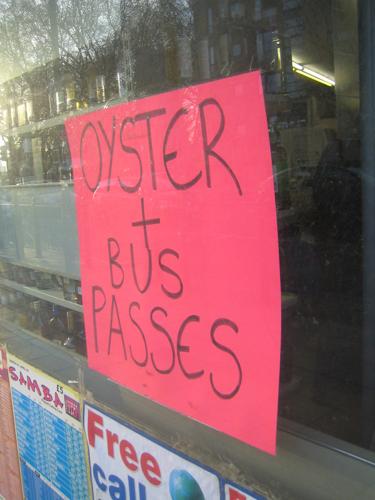 OYSTER
+
BUS
PASSES
SAMBA
£5
Free
call